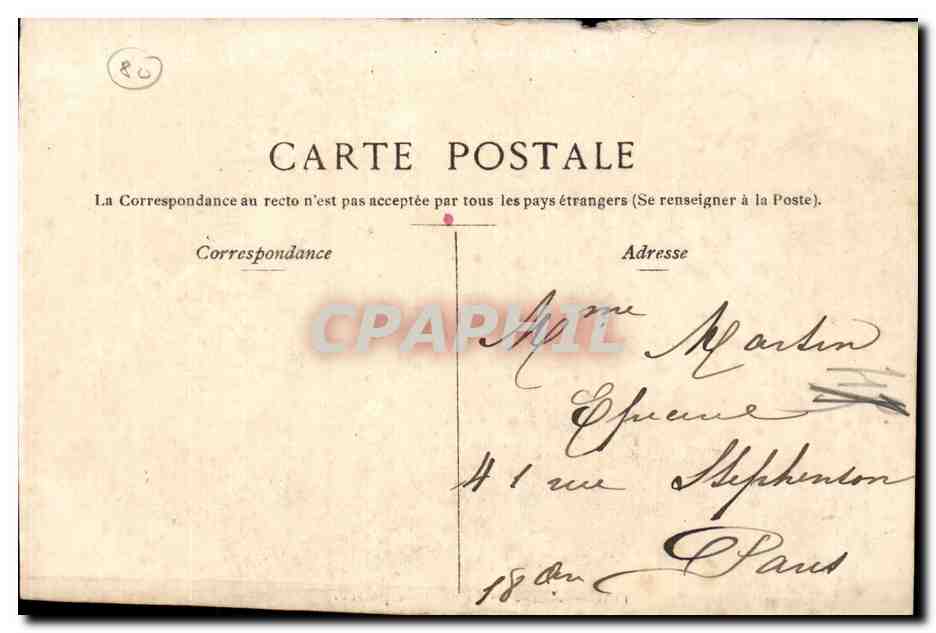 80
CARTE POSTALE
La Correspondance au recto n'est pas acceptée par tous les pays étrangers (Se renseigner à la Poste).
Correspondance
Adresse
CPAPHIL
Mme Martin
41 rue Stephenson
Paris
18